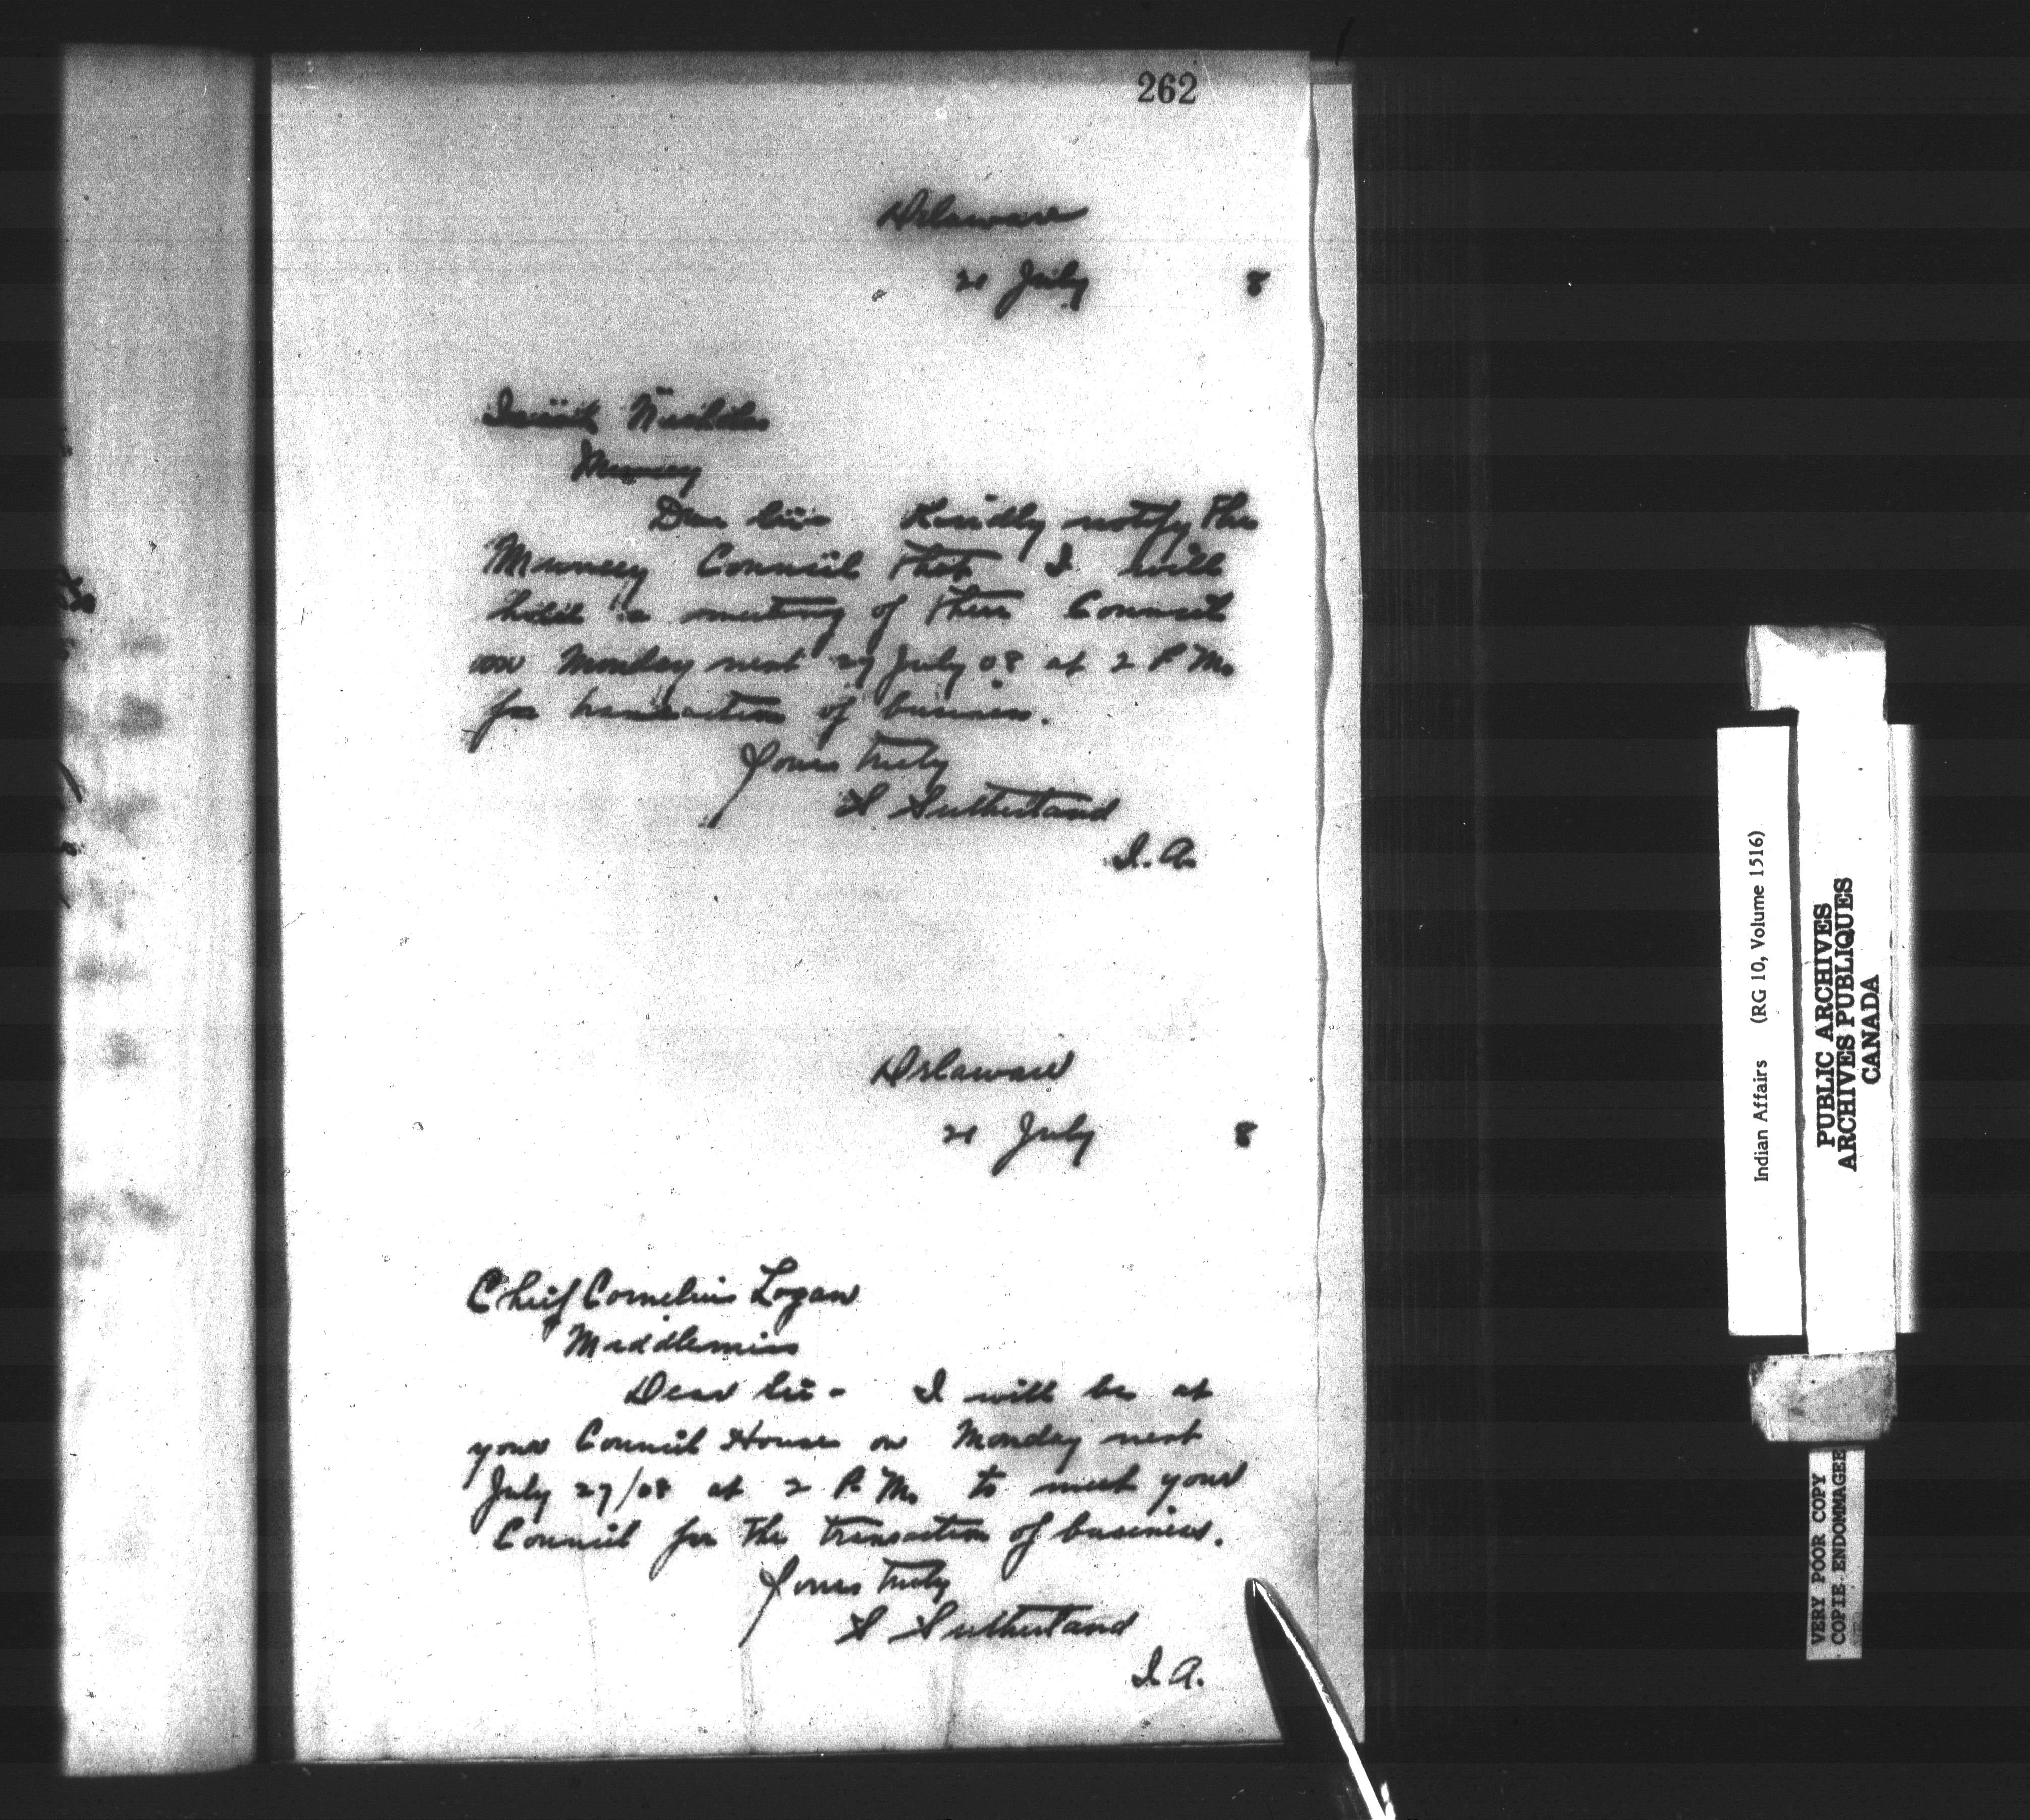 262
Delaware
21 July 8
Muncey
Dear Sir Kindly notify the
Muncey Council that I will
hold a meeting of their Council
on Monday next 27 July 08 at 2 P.M.
for transaction of business.
Yours truly
S Sutherland
I. A.
Delaware
21 July 8
Chief Cornelius Logan
Middlemiss
Dear Sir - I will be at
your Council House on Monday next
July 27/08 at 2 P.M. to meet your
Council for the transaction of business.
Yours truly
S Sutherland
I. A.
Indian Affairs (RG 10, Volume 1516)
PUBLIC ARCHIVES
ARCHIVES PUBLIQUES
CANADA
VERY POOR COPY
COPIE ENDOMMAGEE